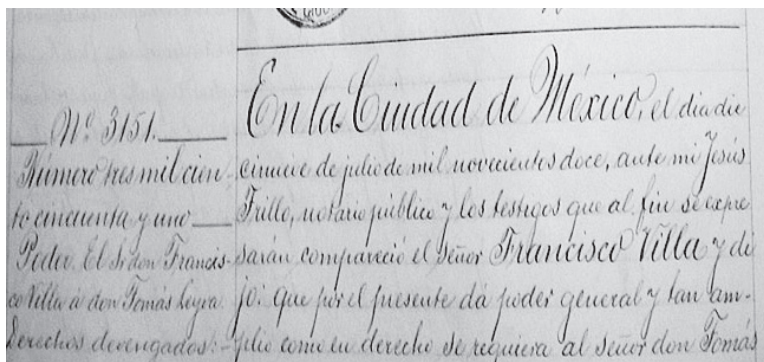 Nº 3151.
Número tres mil cien-
to cincuenta y uno
Poder. El Sr don Francis-
co Villa á don Tomás Leyva
Derechos devengados:
En la Ciudad de México, el dia die
cinueve de julio de mil novecientos doce, ante mi Jesús
Trillo, notario público y los testigos que al fin se expre
sarán compareció el señor Francisco Villa y di
jo: que por el presente dá poder general y tan am-
plio como en derecho se requiera al señor don Tomás